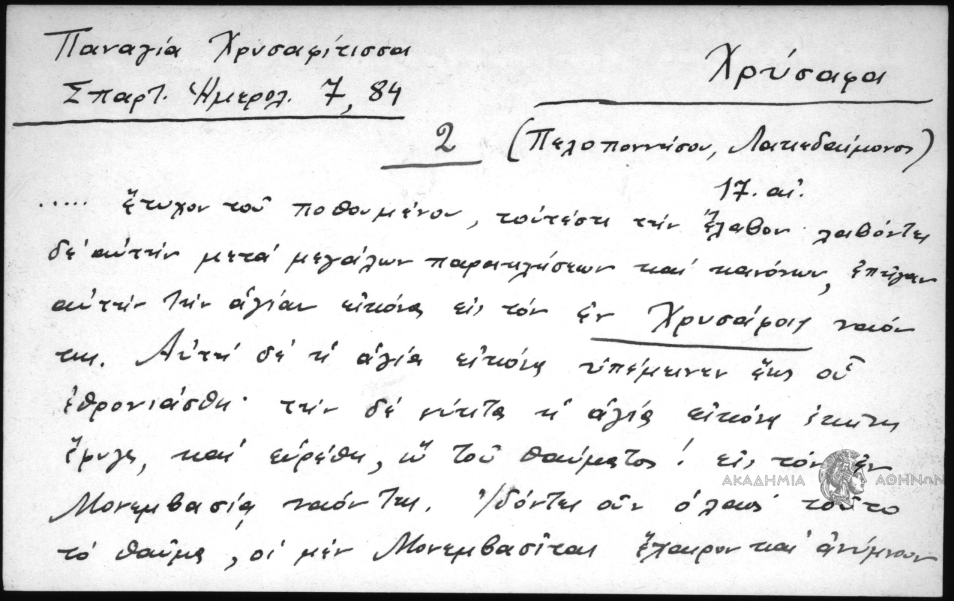 Παναγία Χρυσαφίτισσα
Χρύσαφα
Σπαρτ. Ἡμερολ. 7, 84
2 (Πελοποννήσου, Λακεδαίμονος)
17. αἰ.
..... ἔτυχον τοῦ ποθουμένου, τοὐτέστι τὴν ἔλαβον· λαβόντες
δὲ αὐτὴν μετὰ μεγάλων παρακλήσεων καὶ κανόνων, ἐπῆγαν
αὐτὴν τὴν ἁγίαν εἰκόνα εἰς τὸν ἐν Χρυσάφοις ναόν
της. Αὐτὴ δὲ ἡ ἁγία εἰκόνα ὑπέμεινεν ἕως οὗ
ἐθρονιάσθη· τὴν δὲ νύκτα ἡ ἁγία εἰκόνα ἐκείνη
ἔφυγε, καὶ εὑρέθη, ὢ τοῦ θαύματος! εἰς τὸν ἐν
ΑΚΑΔΗΜΙΑ ΑΘΗΝΩΝ
Μονεμβασίᾳ ναόν της. Ἰδόντες οὖν ὁ λαὸς τοῦτο
τὸ θαῦμα, οἱ μὲν Μονεμβασῖται ἔχαιρον καὶ ἀνύμνουν